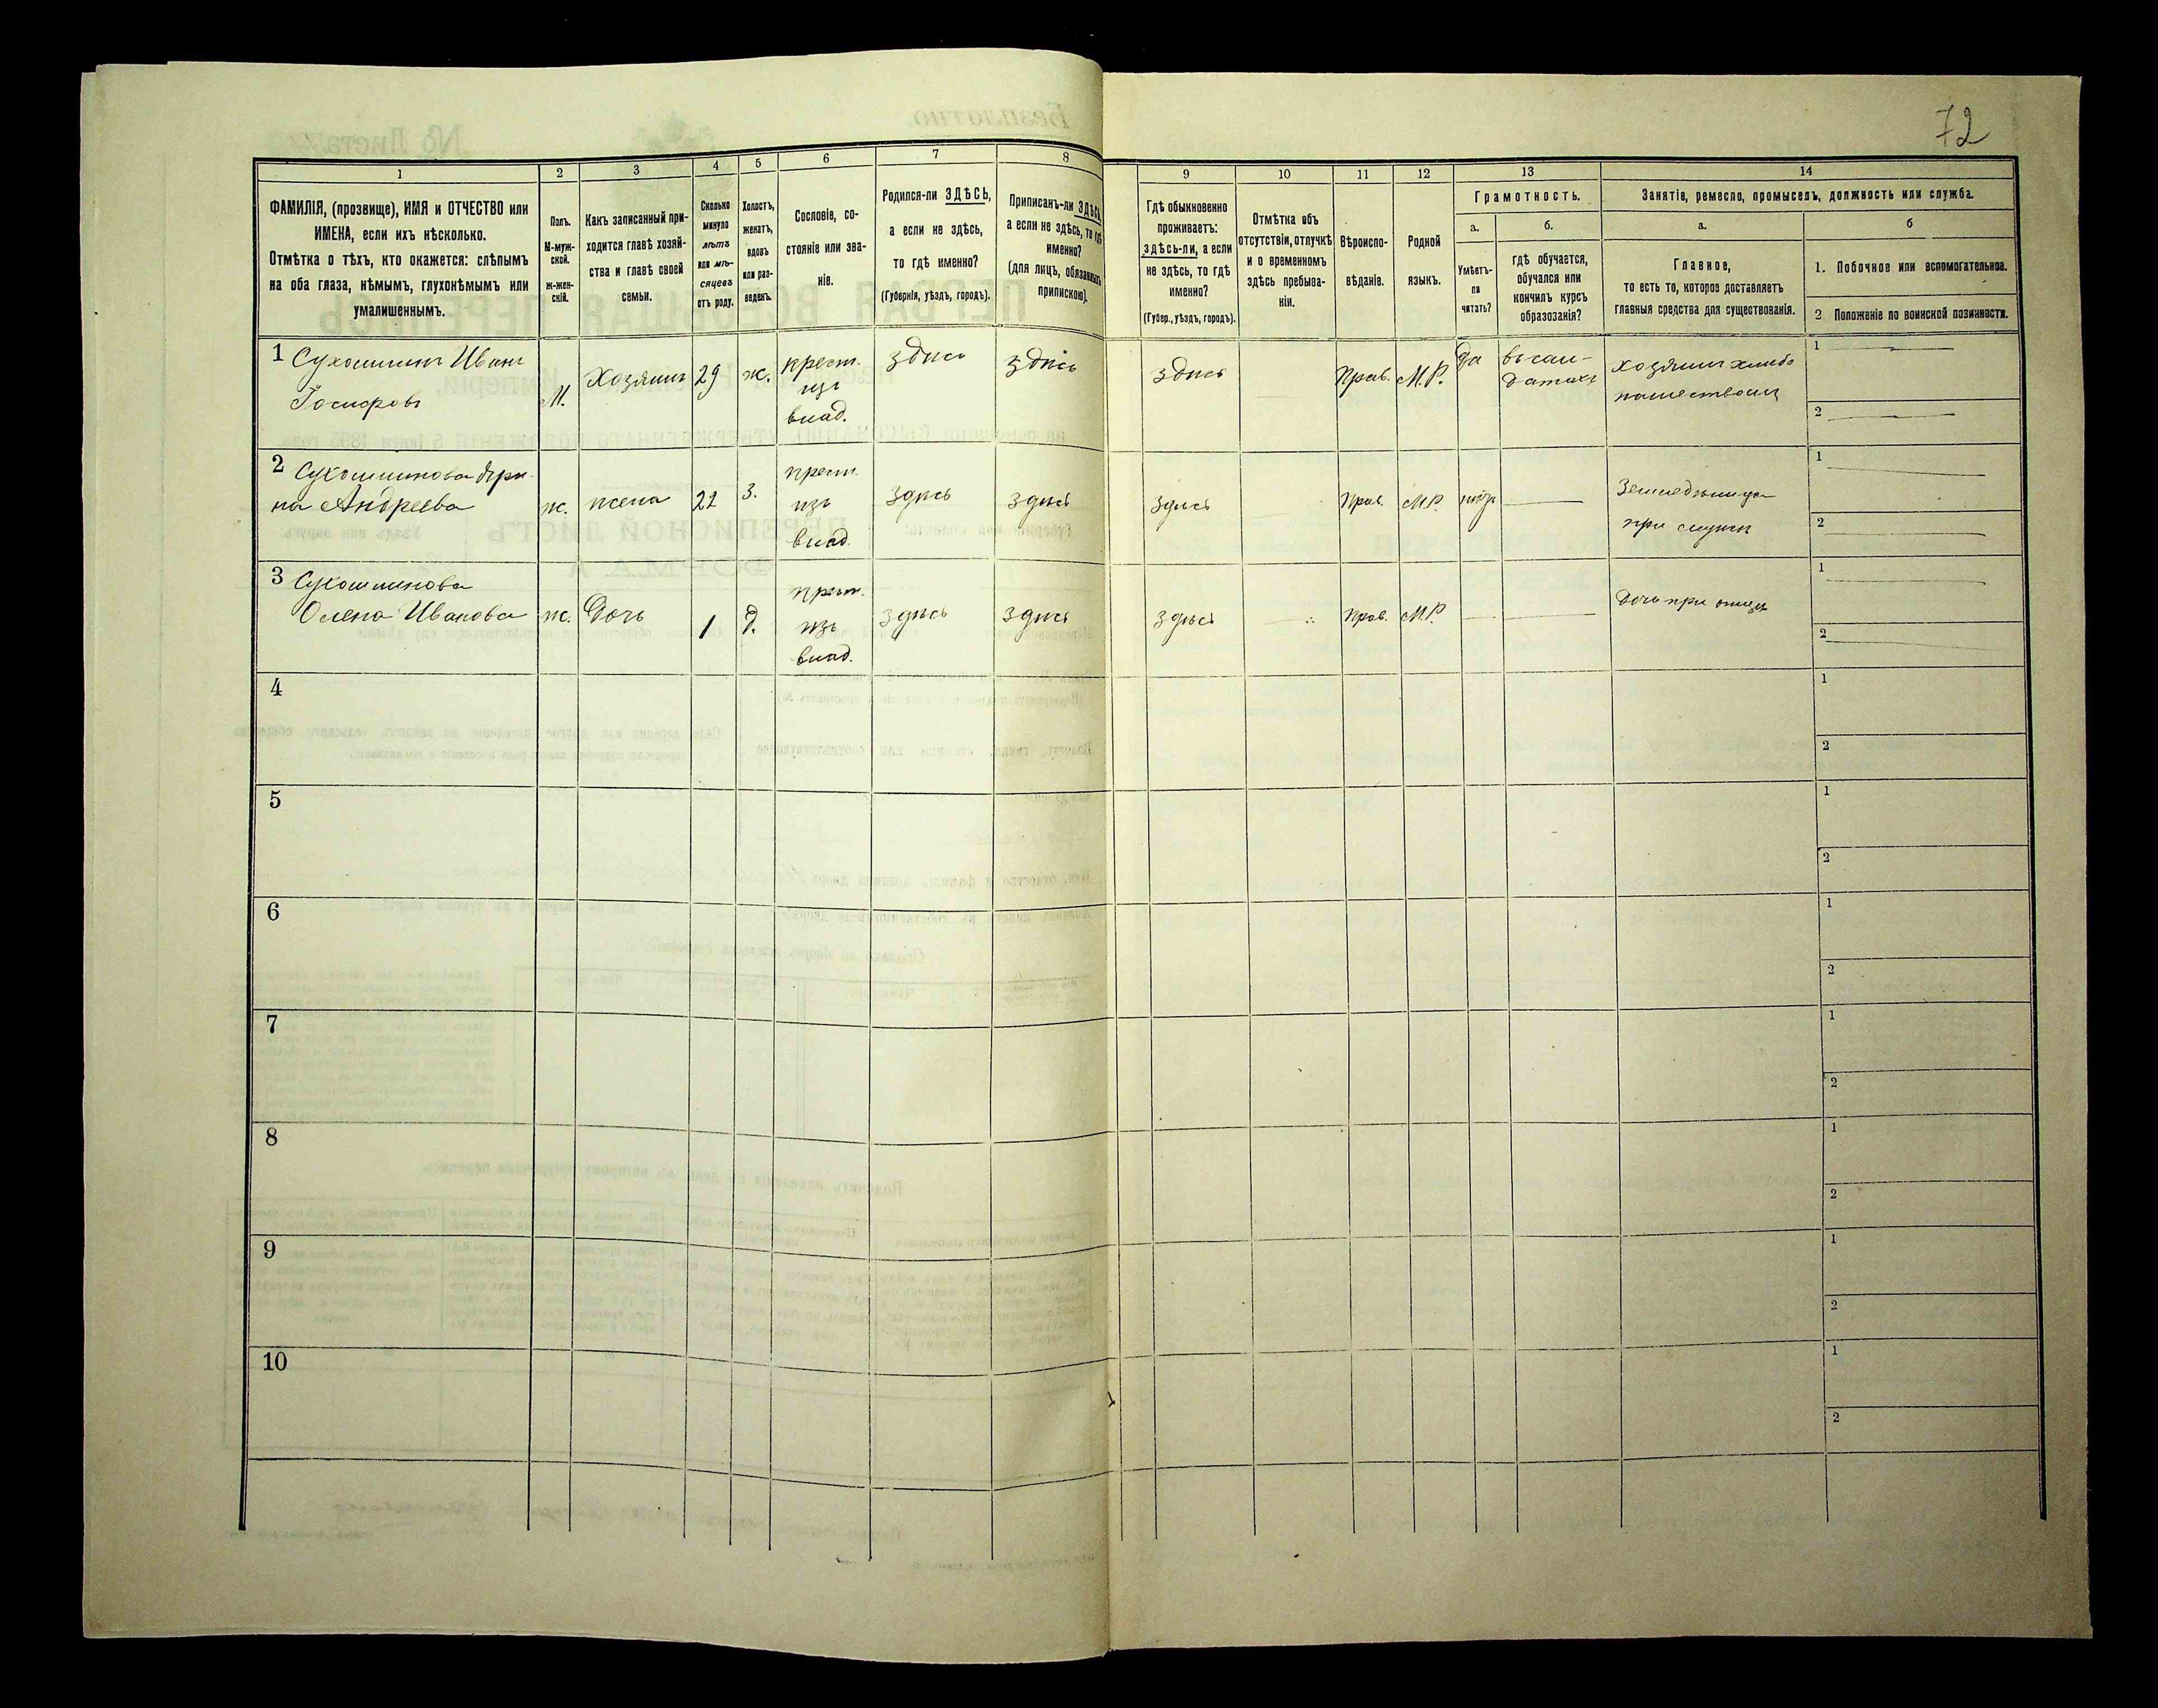 72
1 2 3 4 5 6 7 8 9 10 11 12 13 14
ФАМИЛІЯ, (прозвище), ИМЯ и ОТЧЕСТВО или
ИМЕНА, если ихъ нѣсколько.
Отмѣтка о тѣхъ, кто окажется: слѣпымъ
на оба глаза, нѣмымъ, глухонѣмымъ или
умалишеннымъ.
Полъ.
М-муж-
ской.
ж-жен-
скій.
Какъ записанный при-
ходится главѣ хозяй-
ства и главѣ своей
семьи.
Сколько
минуло
лѣтъ
или мѣ-
сяцевъ
отъ роду.
Холостъ,
женатъ,
вдовъ
или раз-
веденъ.
Сословіе, со-
стояніе или зва-
ніе.
Родился-ли ЗДѢСЬ,
а если не здѣсь,
то гдѣ именно?
(Губернія, уѣздъ, городъ).
Приписанъ-ли ЗДѢСЬ,
а если не здѣсь, то гдѣ
именно?
(для лицъ, обязанныхъ
припискою).
Гдѣ обыкновенно
проживаетъ:
здѣсь-ли, а если
не здѣсь, то гдѣ
именно?
(Губер., уѣздъ, городъ).
Отмѣтка объ
отсутствіи, отлучкѣ
и о временномъ
здѣсь пребыва-
ніи.
Вѣроиспо-
вѣданіе.
Родной
языкъ.
Грамотность.
а.
Умѣетъ-
ли
читать?
б.
гдѣ обучается,
обучался или
кончилъ курсъ
образованія?
Занятіе, ремесло, промыселъ, должность или служба.
а.
Главное,
то есть то, которое доставляетъ
главныя средства для существованія.
б
1. Побочное или вспомогательное.
2 Положеніе по воинской повинности.
1 Сухошлинъ Иванъ
Іосифовъ
М.
Хозяинъ
29
ж.
крест.
изъ
влад.
здѣсь
здѣсь
здѣсь
Прав.
М.Р.
да
въ сол-
датахъ
1
2
2 Сухошлинова
на Андреева
ж.
жена
22
З.
крест.
изъ
влад.
здѣсь
здѣсь
здѣсь
Прав.
М.Р.
при мужѣ
1
2
3 Сухошлинова
Олена Иванова
ж.
Дочь
1
д.
крест.
изъ
влад.
здѣсь
здѣсь
здѣсь
Прав.
М.Р.
Дочь при отцѣ
1
2
4
1
2
5
1
2
6
1
2
7
1
2
8
1
2
9
1
2
10
1
2